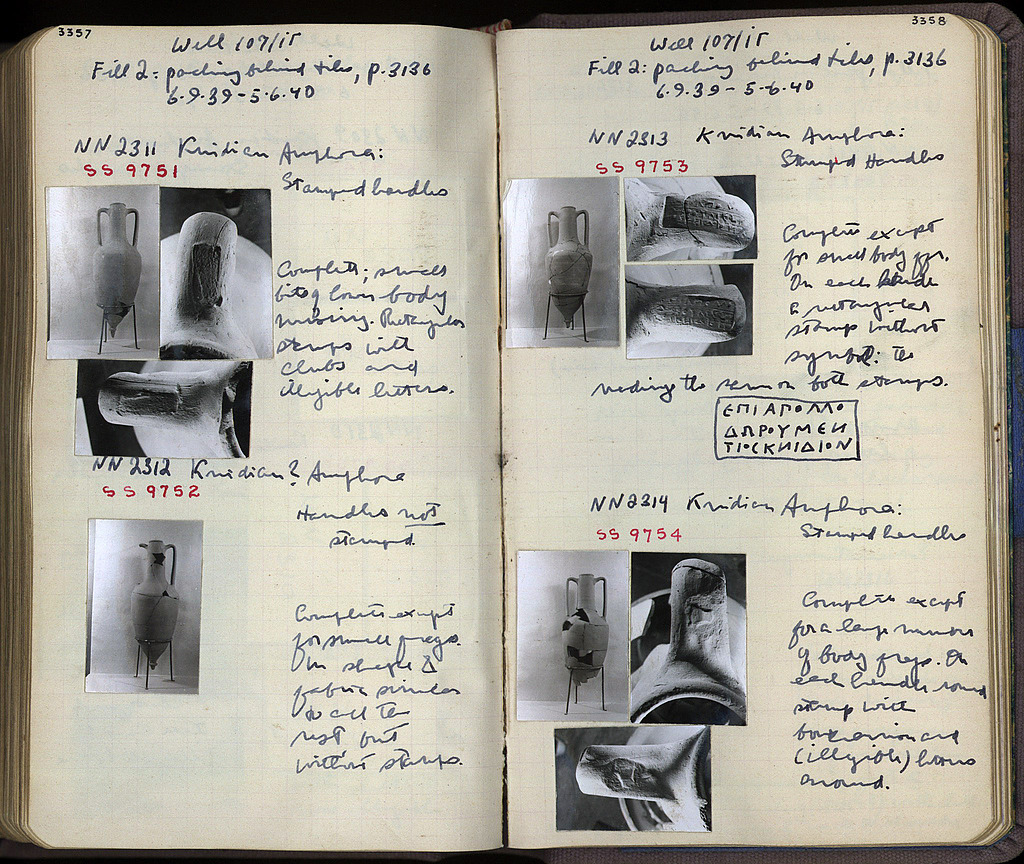 3357
Well 107/ΙΤ
Fill 2: packing behind tiles, p. 3136
6.9.39 - 5.6.40
NN 2311 Knidian Amphora:
SS 9751
Stamped handles
Complete; small
bits of lower body
missing. Rectangular
stamps with
clubs and
illegible letters.
NN 2312 Knidian? Amphora
SS 9752
Handles not
stamped.
Complete except
for small frags.
In shape &
fabric similar
to all the
rest but
without stamps.
3358
Well 107/ΙΤ
Fill 2: packing behind tiles, p. 3136
6.9.39 - 5.6.40
NN 2313 Knidian Amphora:
SS 9753
Stamped Handles
Complete except
for small body frgs.
On each handle
a rectangular
stamp without
symbol: the
reading the same on both stamps.
ΕΠΙΑΠΟΛΛΟ
ΔΩΡΟΥΜΕΝ
ΤΙΟϹΚΝΙΔΙΟΝ
NN 2314 Knidian Amphora:
SS 9754
Stamped handles
Complete except
for a large number
of body frags. On
each handle round
stamp with
and
(illegible) letters
around.